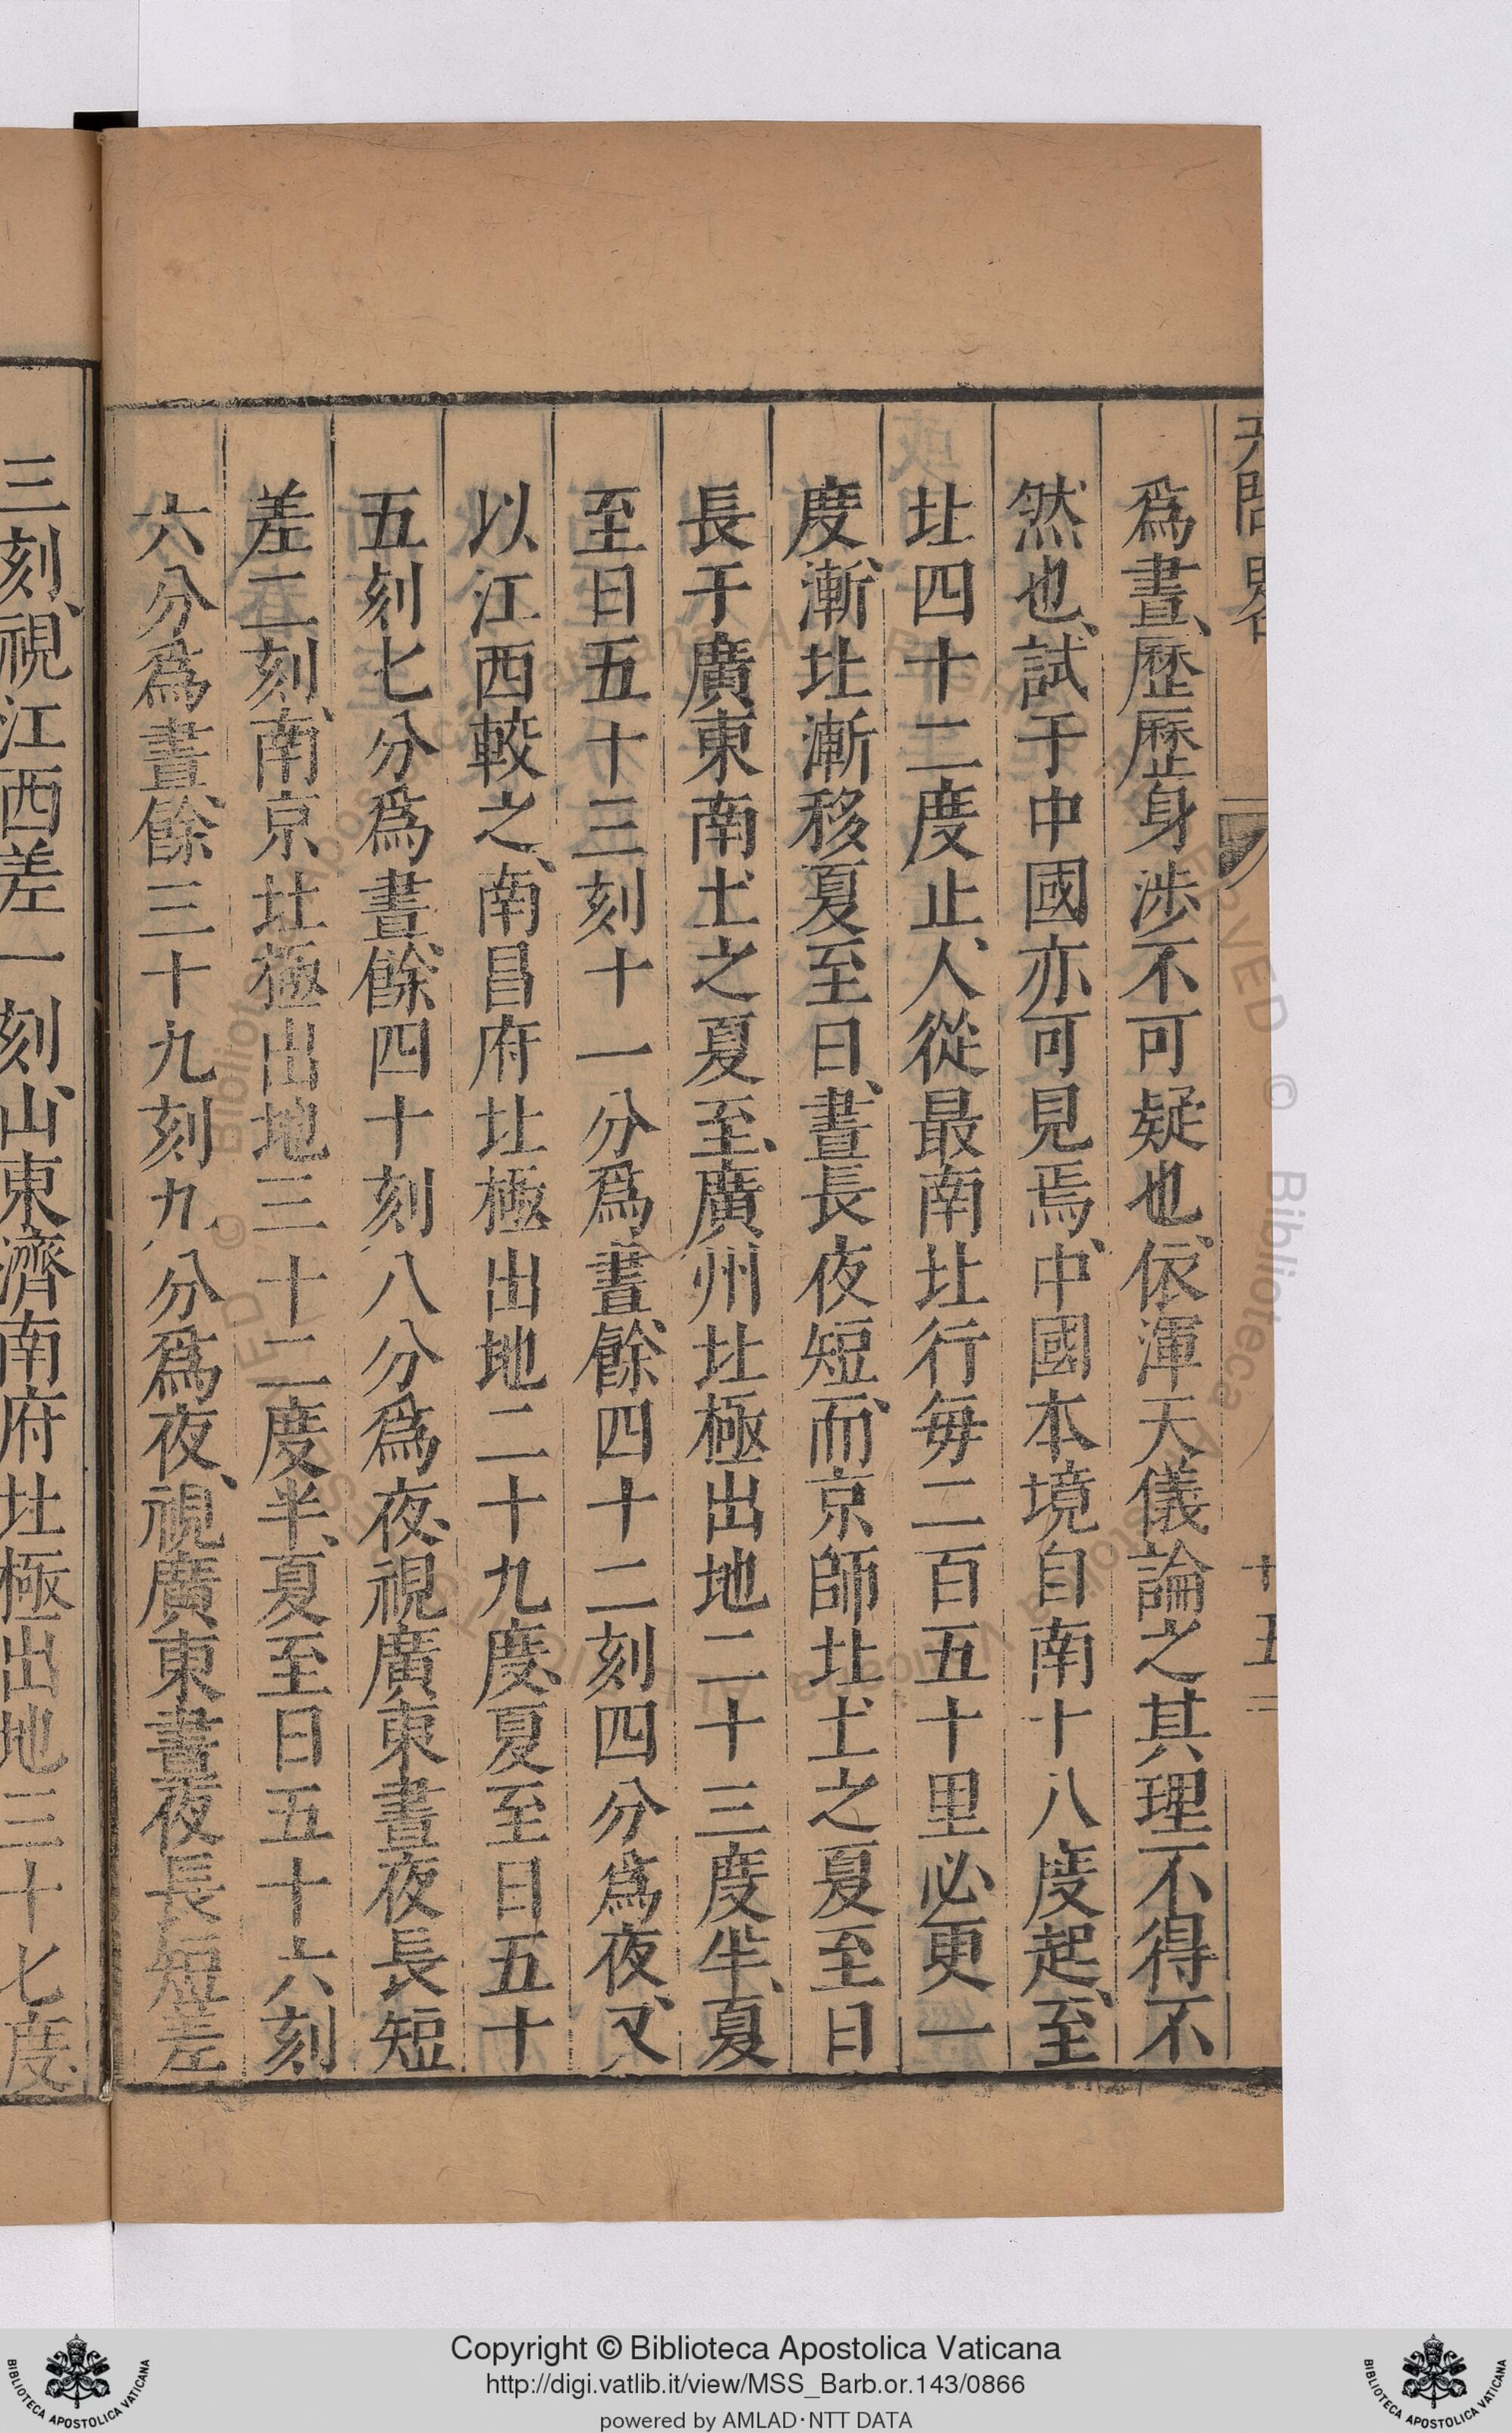 爲晝、歷歷身涉不可疑也、依渾天儀論之其理不得不
然也、試于中國亦可見焉、中國本境自南十八度起、至
北四十二度止、人從最南北行毎二百五十里必更一
度、漸北漸移夏至日、晝長夜短、而京師北土之夏至日
長于廣東南土之夏至、廣州北極出地二十三度半、夏
至日五十三刻十一分爲晝、餘四十二刻四分爲夜、又
以江西較之、南昌府北極出地二十九度、夏至日五十
五刻七分爲晝、餘四十刻八分爲夜、視廣東晝夜長短
差二刻、南京北極出地三十二度半、夏至日五十六刻
六分爲晝、餘三十九刻九分爲夜、視廣東晝夜長短差
三刻、視江西差一刻、山東濟南府北極出地三十七度、
Copyright © Biblioteca Apostolica Vaticana
http://digi.vatlib.it/view/MSS_Barb.or.143/0866
powered by AMLAD·NTT DATA
BIBLIOTECA APOSTOLICA VATICANA
BIBLIOTECA APOSTOLICA VATICANA